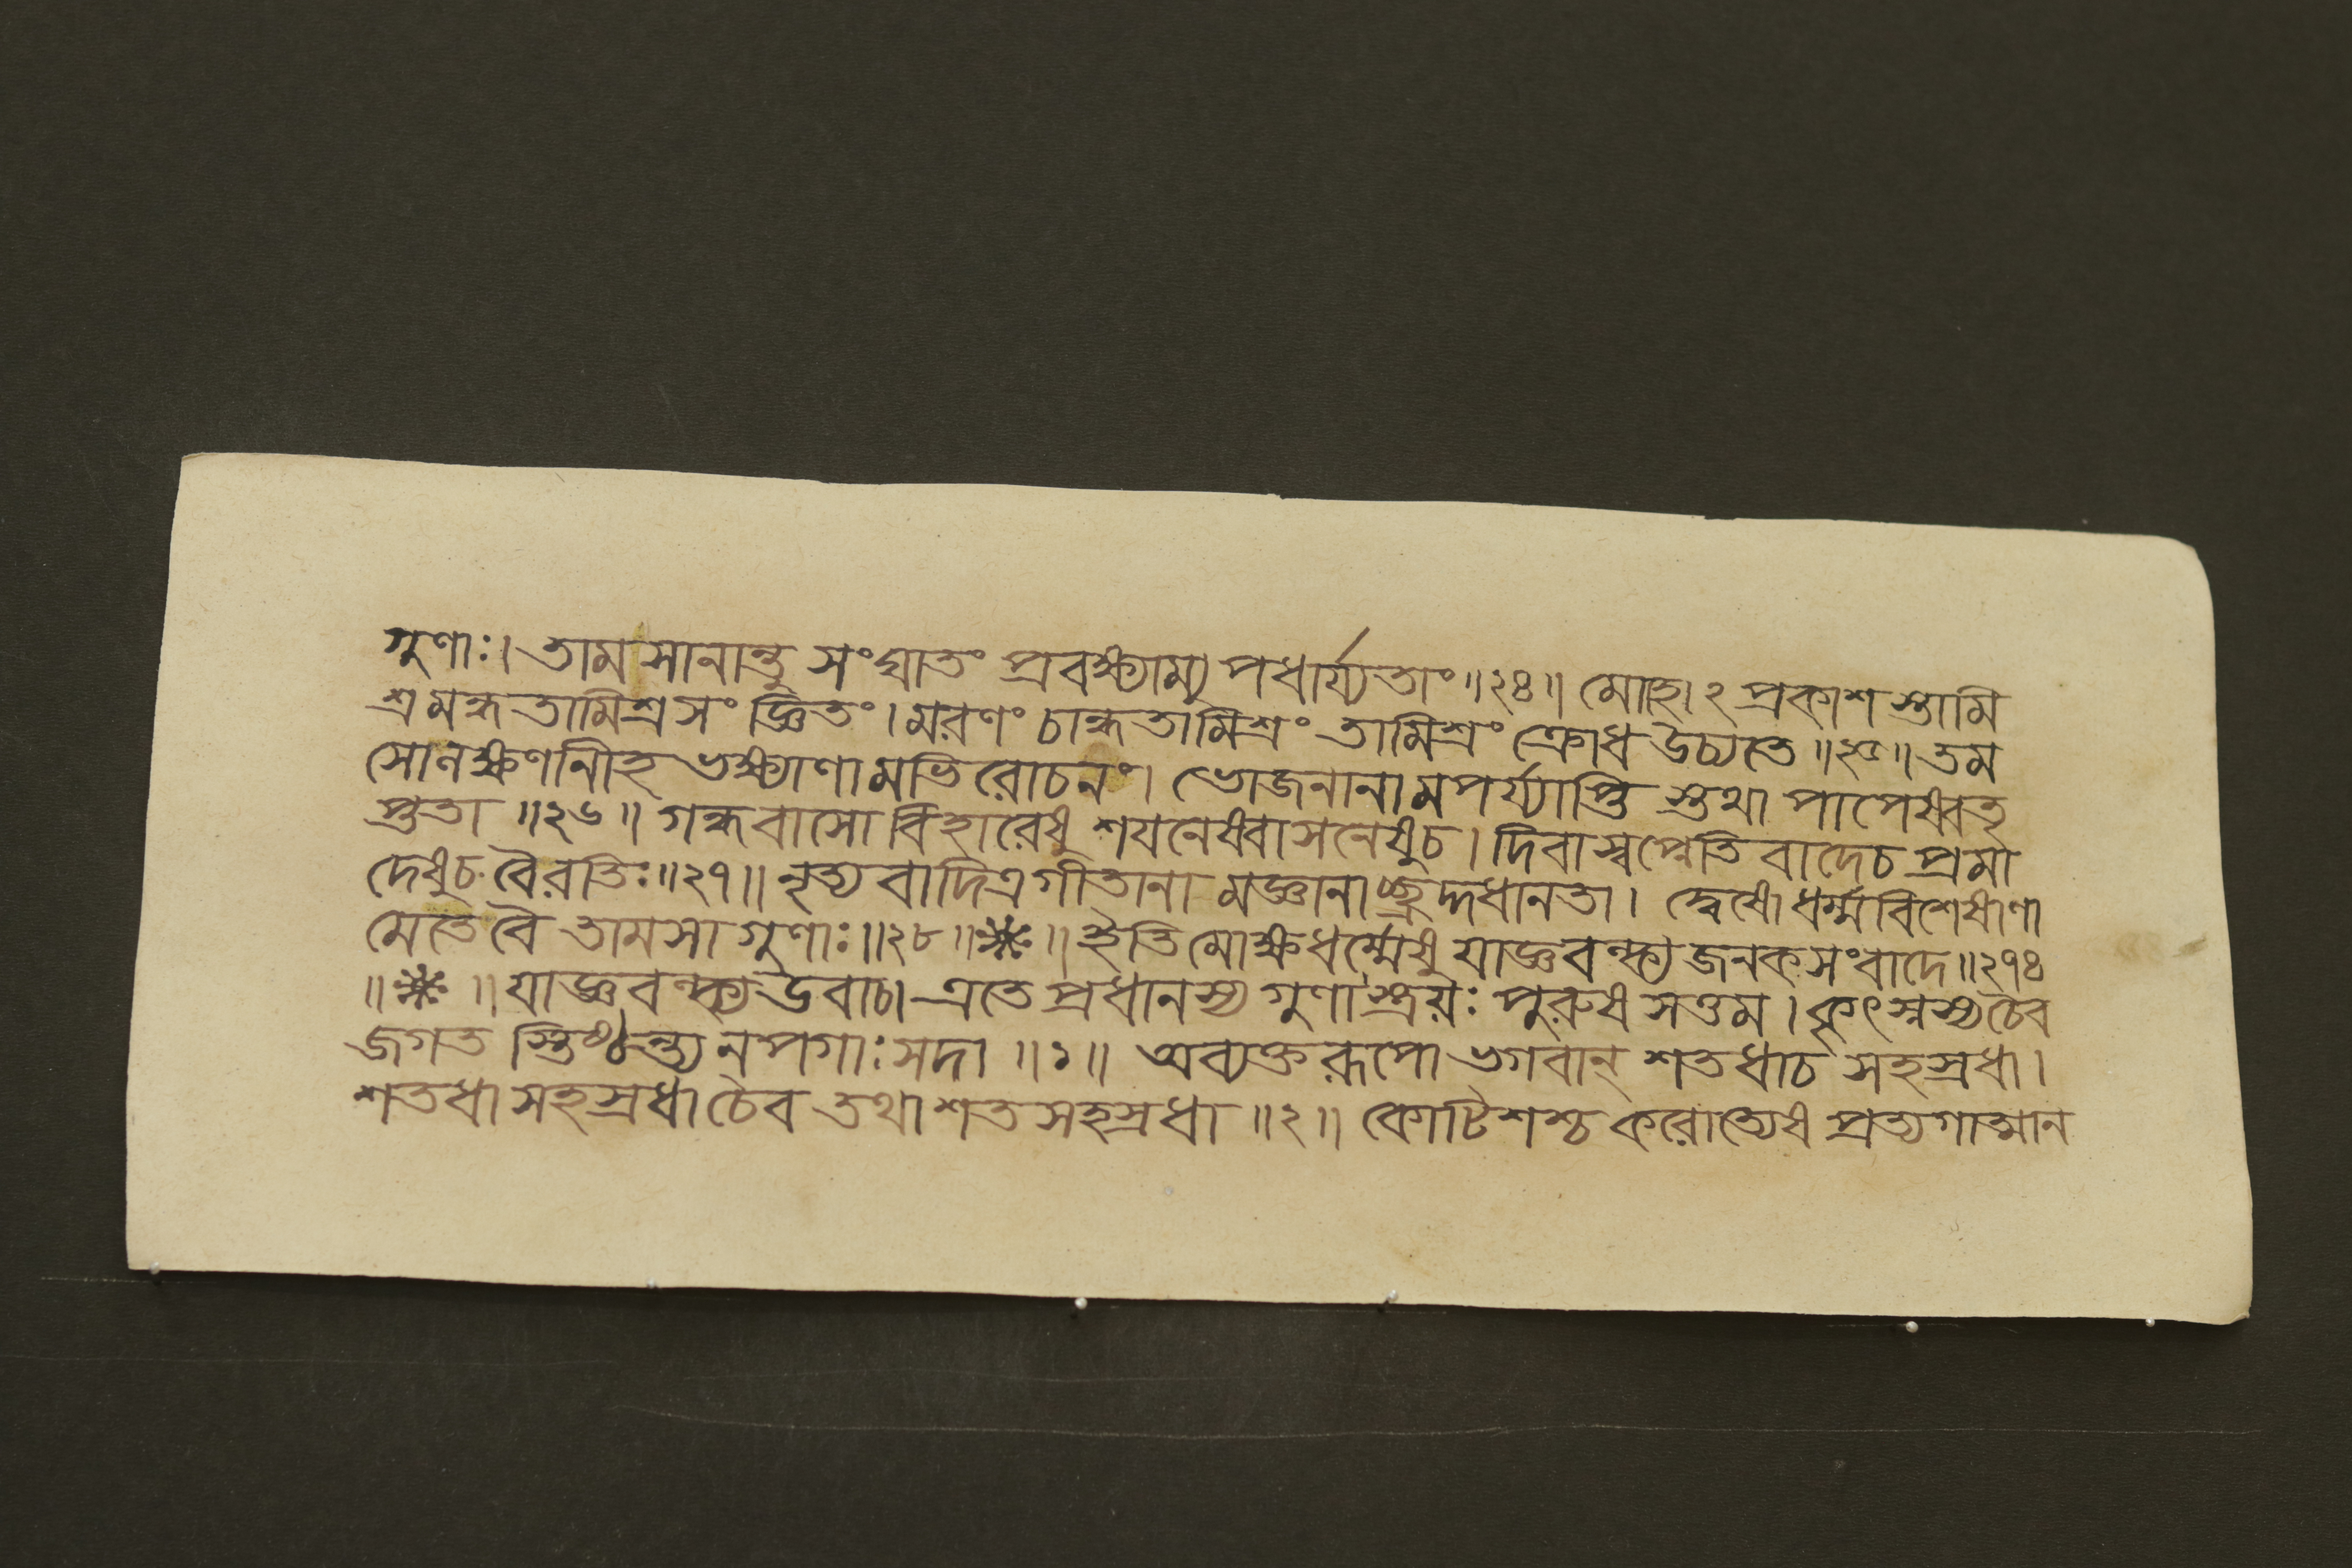 গুণাঃ। তামসানান্তু সংঘাতং প্রবক্ষ্যাম্যুপধার্য্যতাং ॥২৪॥ মোহোঽপ্রকাশস্তামি
শ্রমন্ধতামিশ্রসংজ্ঞিতং। মরণং চান্ধতামিশ্রং তামিশ্রং ক্রোধ উচ্যতে ॥২৫॥ তম
সোনক্ষণনীহ ভক্ষ্যাণামভিরোচনং। ভোজনানামপর্য্যাপ্তি স্তথা পাপেষ্বতৃ
প্ততা ॥২৬॥ গন্ধবাসো বিহারেষু শযনেষ্বাসনেষুচ। দিবাস্বপ্নেতিবাদেচ প্রমা
দেষুচ বৈরতিঃ॥২৭॥ নৃত্যবাদিত্রগীতানা মজ্ঞানাচ্ছ্রদ্দধানতা। দ্বেষো ধর্ম্মবিশেষাণা
মেতে বৈ তামসা গুণাঃ॥২৮॥❋॥ ইতি মোক্ষধর্ম্মেষু যাজ্ঞবল্ক্যজনকসংবাদে॥২৭৪
॥❋॥ যাজ্ঞবল্ক্য উবাচ। এতে প্রধানস্য গুণাস্ত্রয়ঃ পুরুষসত্তম। কৃৎস্নস্যচৈব
জগত স্তিষ্ঠন্ত্যনপগাঃ সদা ॥১॥ অব্যক্তরূপো ভগবান্ শতধাচ সহস্রধা।
শতধা সহস্রধা চৈব তথা শতসহস্রধা ॥২॥ কোটিশশ্চ করোত্যেষ প্রত্যগাত্মান